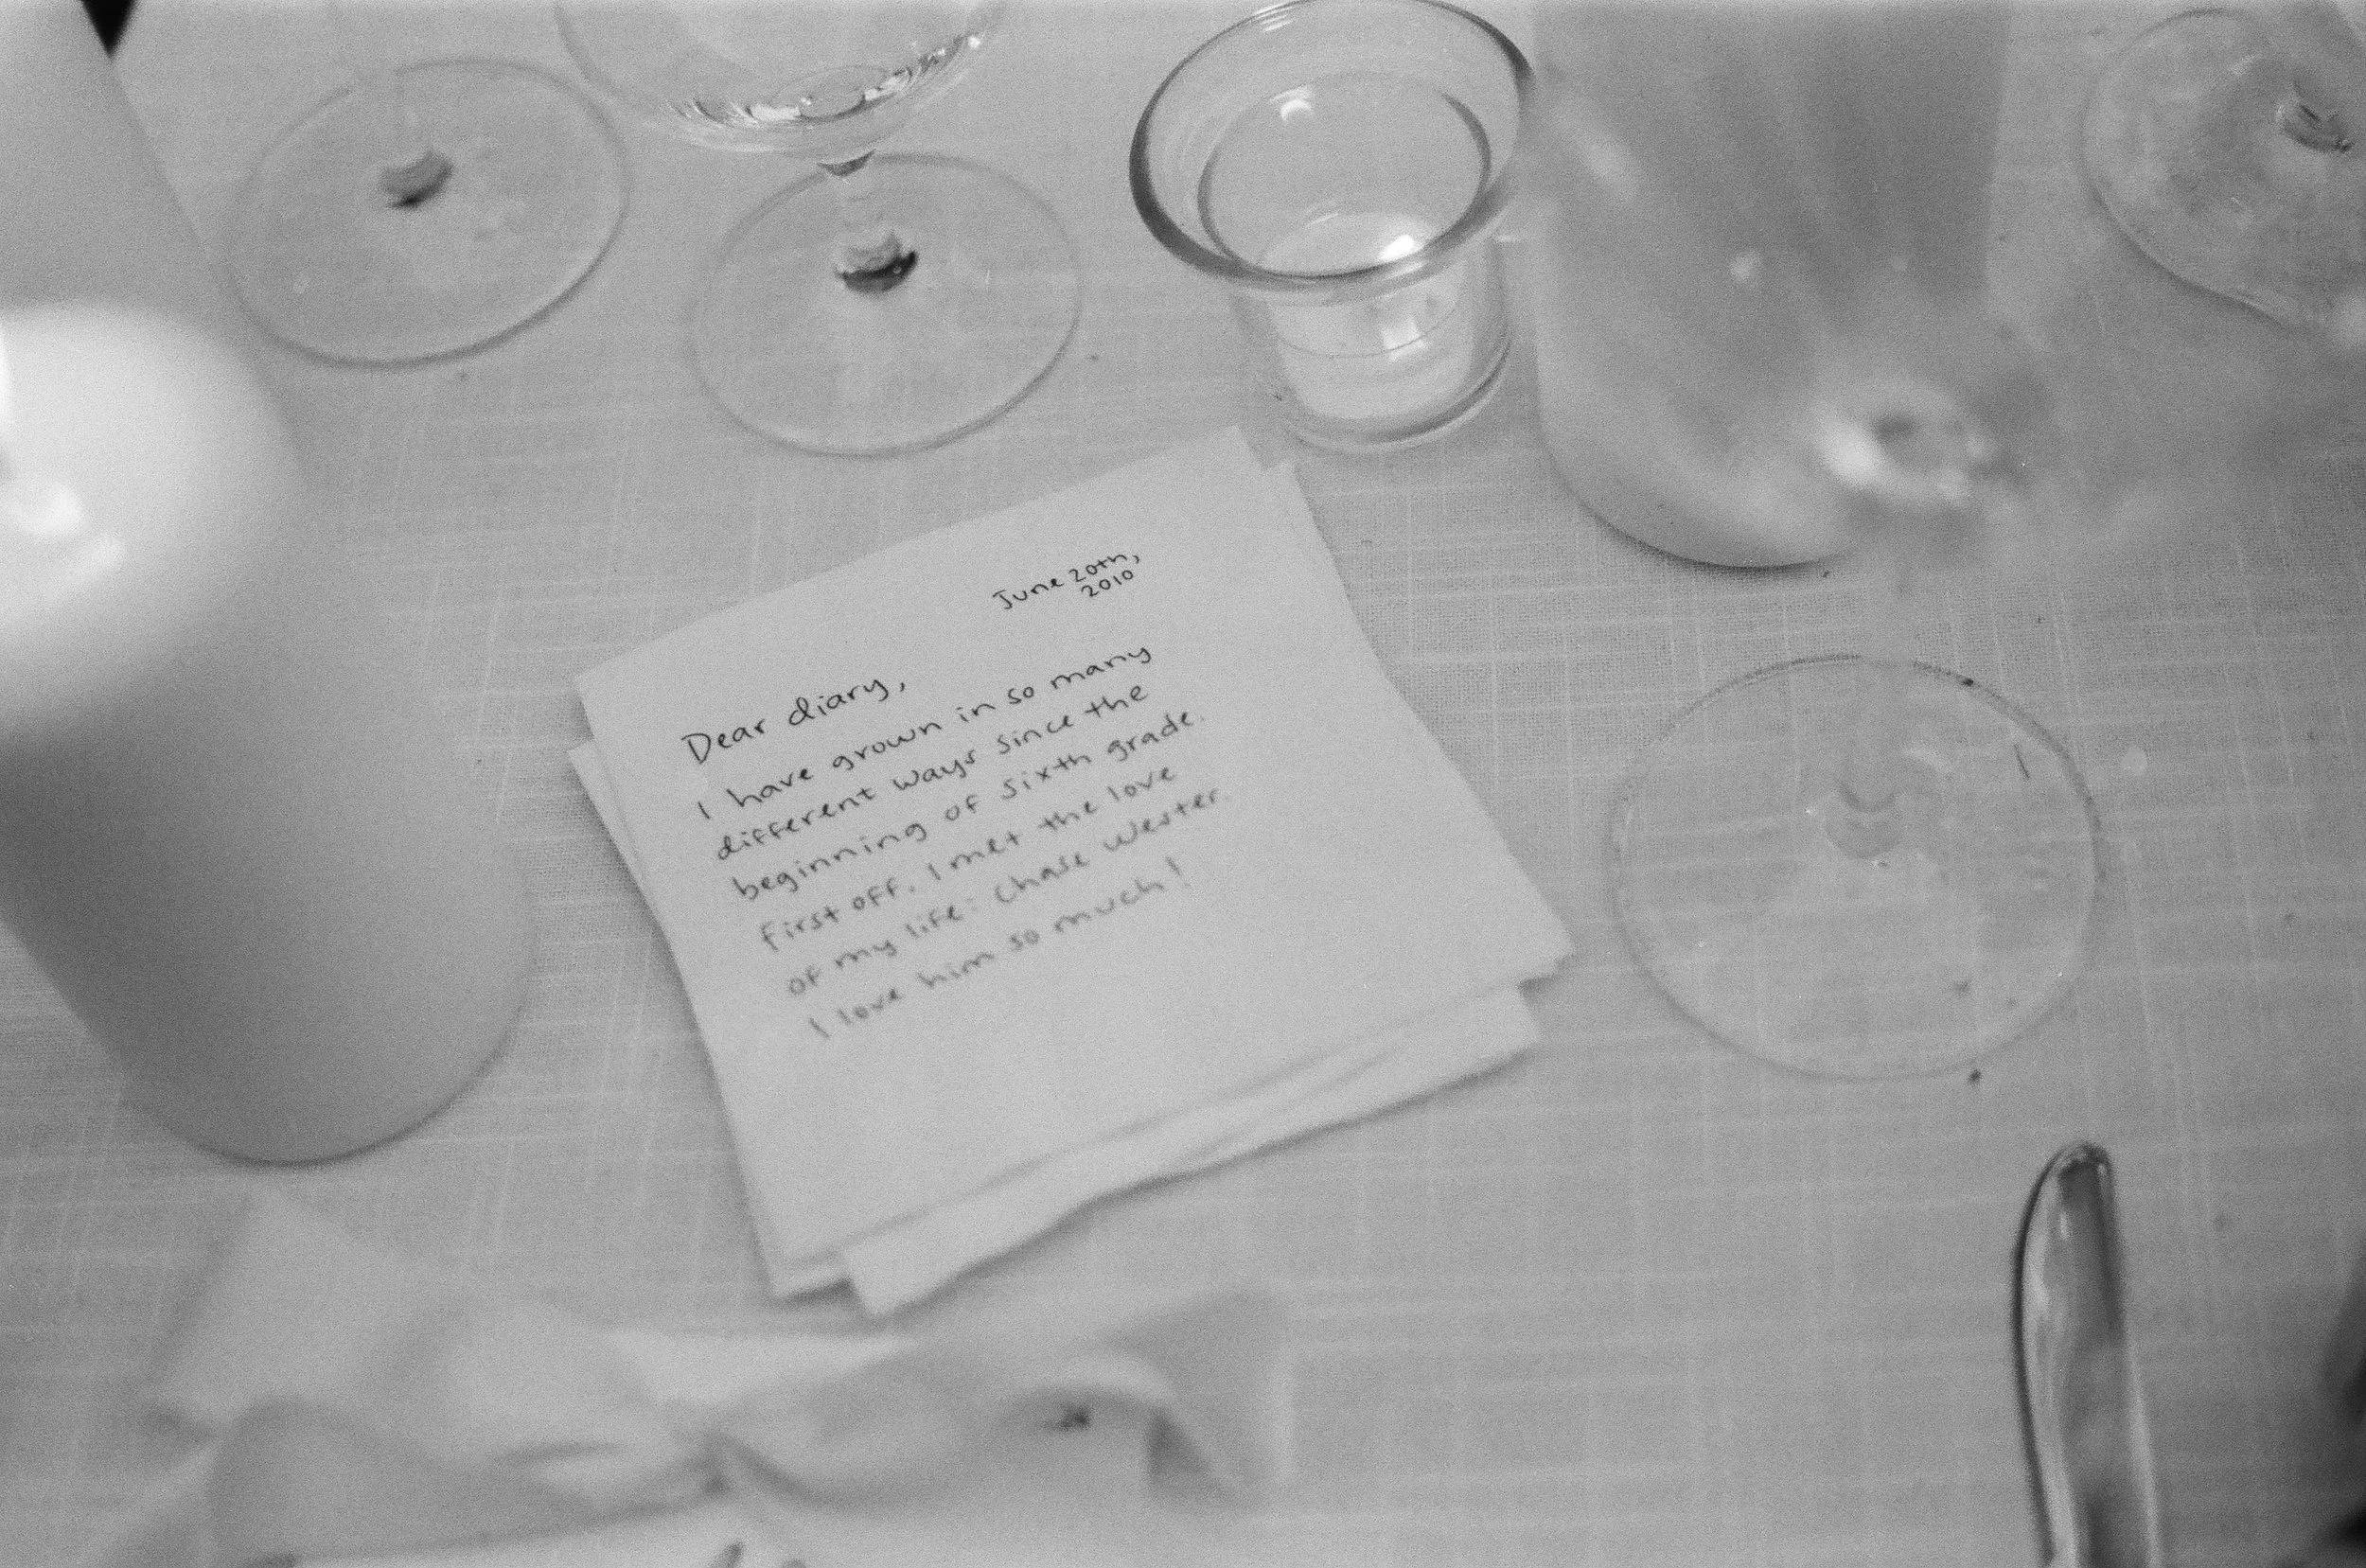 June 20th,
2010
Dear diary,
I have grown in so many
different ways since the
beginning of sixth grade.
First off, I met the love
of my life: Chase Wester.
I love him so much!